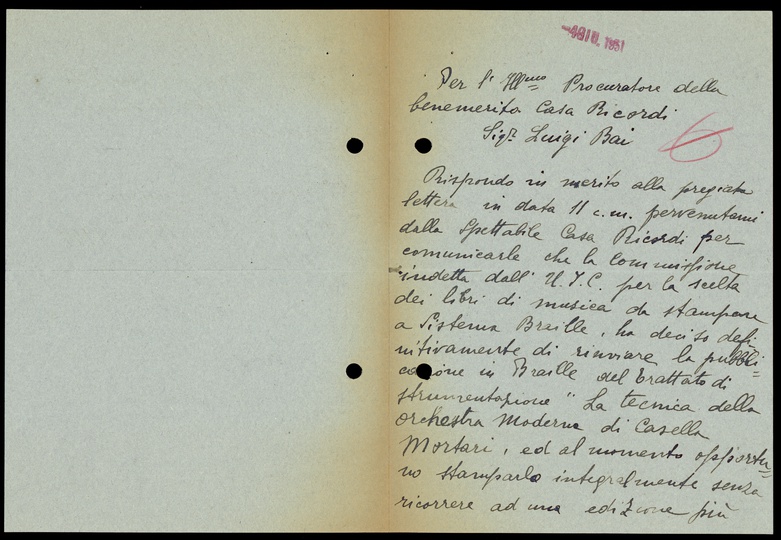 GIU. 1951
Per l' Ill.mo Procuratore della
benemerita Casa Ricordi
Sig.r Luigi Bai
6
Rispondo in merito alla pregiata
lettera in data 11 c.m. pervenutami
dalla Spettabile Casa Ricordi per
comunicarle che la Commissione
indetta dall' U.I.C. per la scelta
dei libri di musica da stampare
a Sistema Braille, ha deciso defi-
nitivamente di rinviare la pubbli-
cazione in Braille del trattato di
strumentazione " La tecnica della
orchestra Moderna di Casella
Mortari, ed al momento opportu-
no stamparlo integralmente senza
ricorrere ad una edizione più